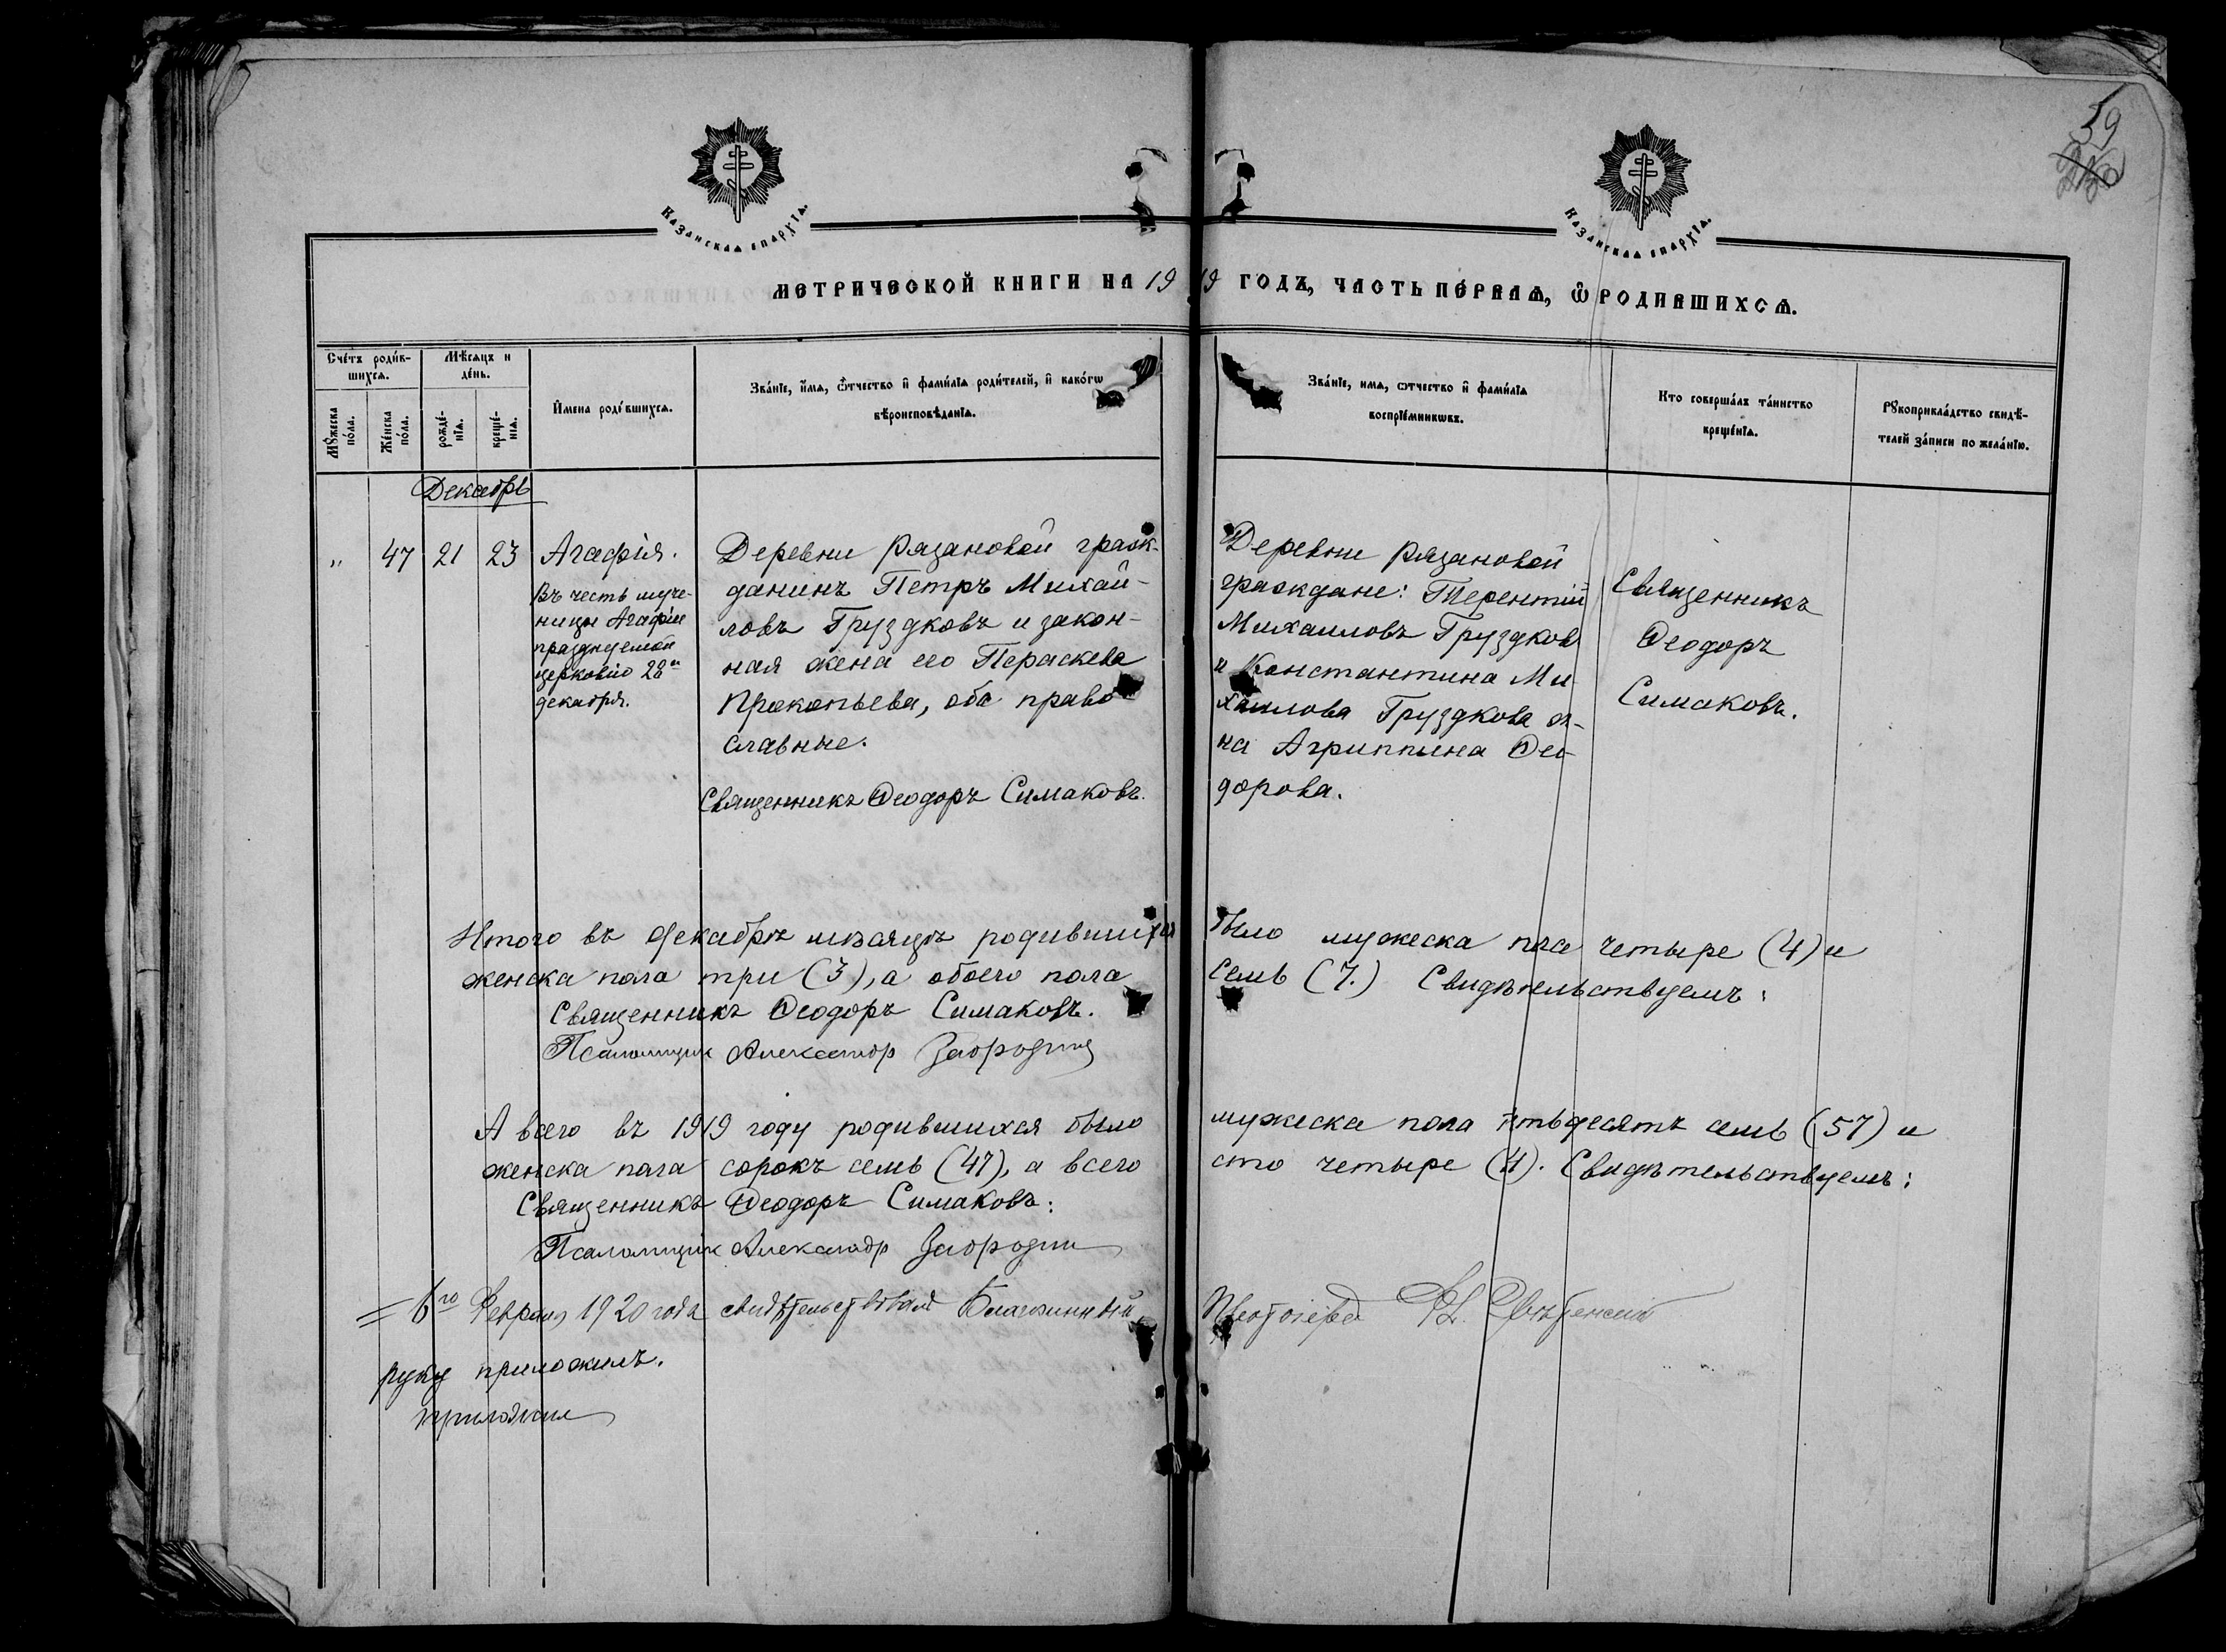 59
Казанская епархїѧ.
Казанская епархїѧ.
МЕТРИЧЕСКОЙ КНИГИ НА 1919 ГОДЪ, ЧАСТЬ ПЕ́РВАѦ, Ѡ РОДИВШИХСѦ.
Сче́тъ роди́вшихсѧ.
Мѣ́сѧцъ и де́нь.
Мꙋ́жеска по́ла.
Же́нска по́ла.
рожде́нїѧ.
креще́нїѧ.
И́мена роди́вшихсѧ.
Зва́нїе, и́мѧ, ѻ҆́тчество и҆ фами́лїѧ роди́телей, и҆ како́гѡ
вѣроисповѣ́данїѧ.
Зва́нїе, имѧ, ѻтчество и҆ фами́лїѧ
воспрїе́мникѡвъ.
Кто соверша́лъ та́инство
креще́нїѧ.
Рꙋкоприкла́дство свидѣ́-
телей за́писи по жела́нїю.
Декабрь
" 47 21 23
Агафія.
Въ честь муче-
ницы Агафіи
празднуемой
церковію 28го
декабря.
Деревни Рязановой граж-
данинъ Петръ Михай-
ловъ Груздковъ и закон-
ная жена его Параскева
Прокопьева, оба право
славные.
Священникъ Ѳеодоръ Симаковъ.
Деревни Рязановой
граждане: Терентій
Михаиловъ Груздковъ
и Константина Ми
хаилова Груздкова
на Агриппина Ѳео
дорова.
Священникъ
Ѳеодоръ
Симаковъ.
Итого въ декабрѣ мѣсяцѣ родившихся было мужеска пола четыре (4) и
женска пола три (3), а обоего пола семь (7.) Свидѣтельствуемъ:
Священникъ Ѳеодоръ Симаковъ.
Псаломщик Александр
А всего въ 1919 году родившихся было мужеска пола пѣтьдесятъ семь (57) и
женска пола сорокъ семь (47), а всего сто четыре (4). Свидѣтельствуемъ:
Священникъ Ѳеодоръ Симаковъ:
Псаломщик Александр
= 6го Февраля 1920 года свидѣтельствовалъ Благочинный Протоіерей
руку приложилъ.
приложил